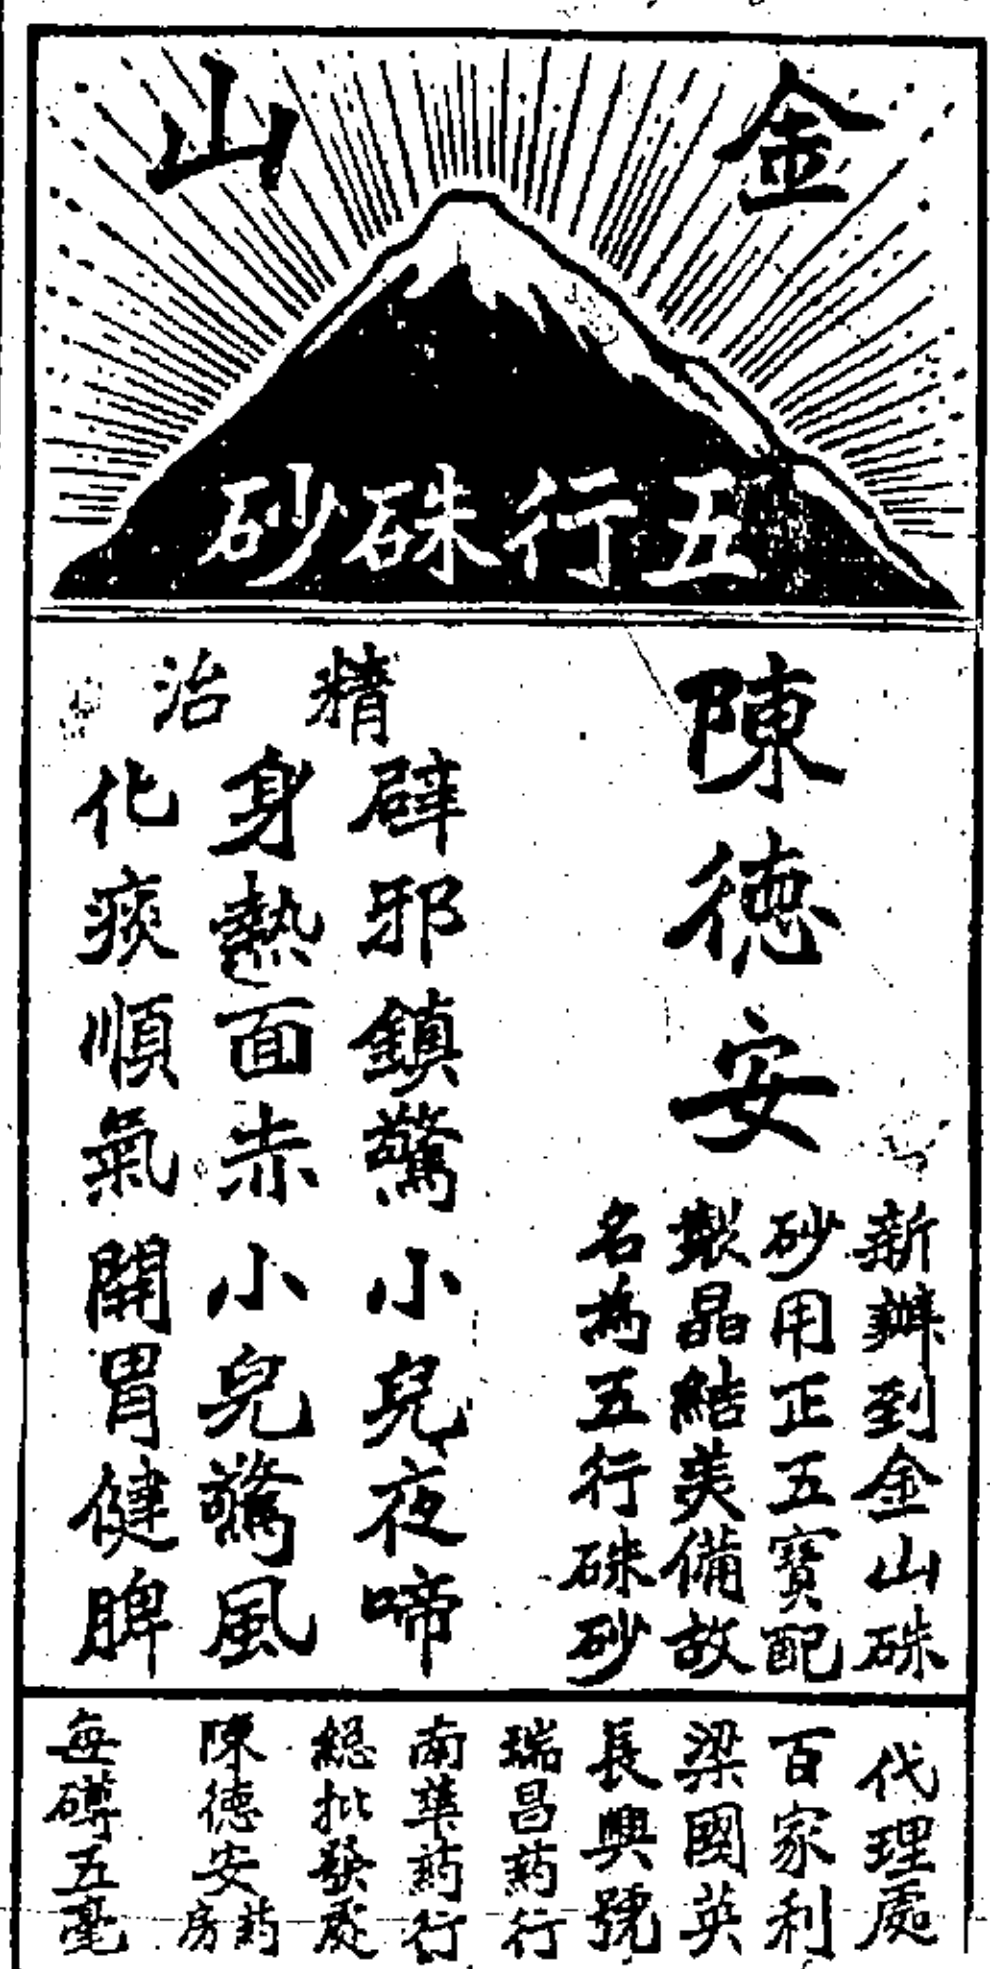 金山
五行硃砂
陳德安
新辦到金山硃
砂用正五寶配
製晶結美備故
名為五行硃砂
精治
辟邪鎮驚小兒夜啼
身熱面赤小兒驚風
化痰順氣開胃健脾
代理處
百家利
梁國英
長興號
瑞昌葯行
南華葯行
總批發處
陳德安葯房
每罇五毫